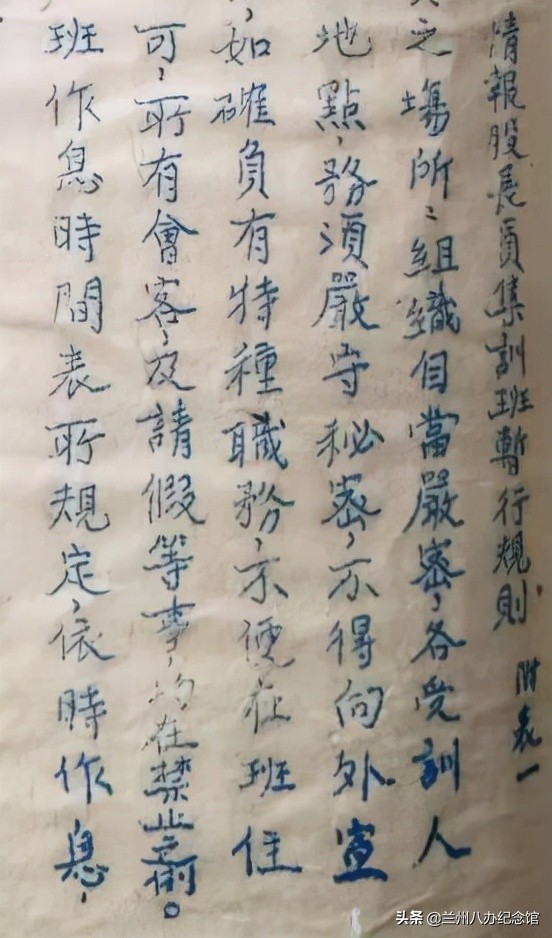 情報股長員集訓班暫行規則 附表一
之場所：組織自當嚴密，各受訓人
地點，務須嚴守秘密，不得向外宣
，如確負有特種職務，不便在班住
可，所有會客，及請假等事，均在禁止之例。
班作息時間表所規定，依時作息，
头条 @兰州八办纪念馆